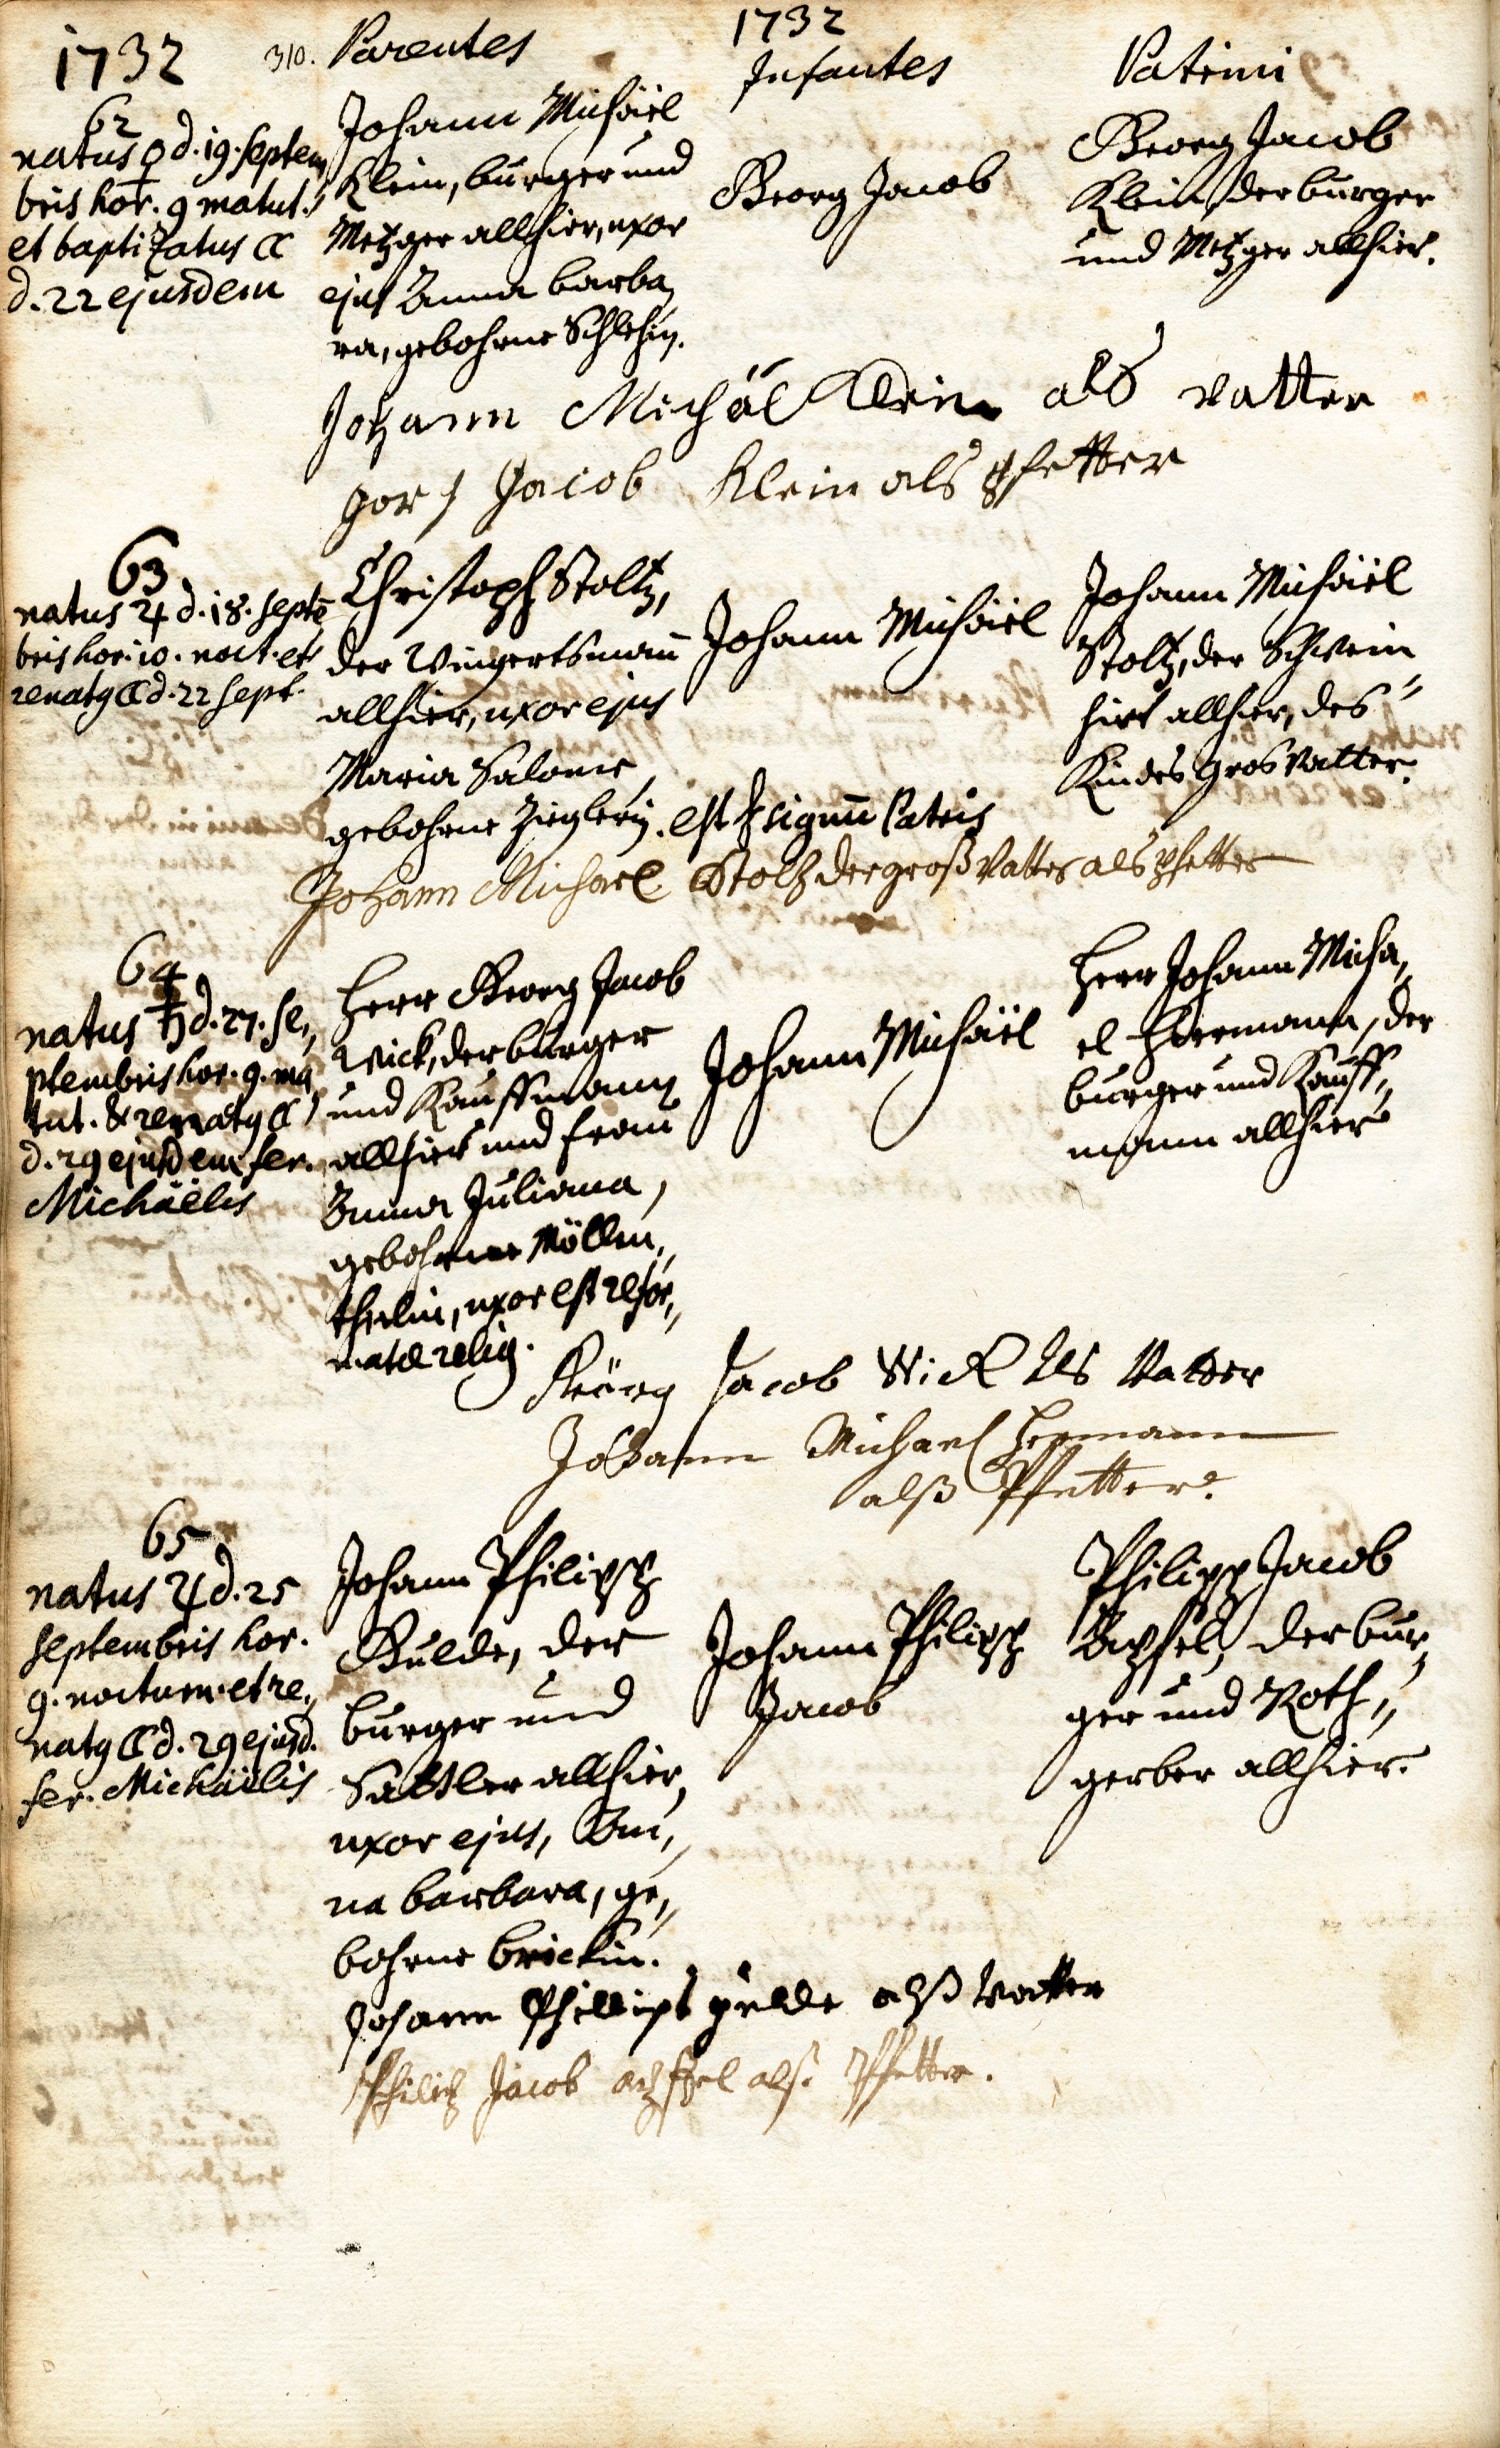 1732
310. Parentes
1732
Infantes
Patrini
62
natus ♀ d. 19. Septem
bris hor. 9 matut.
et baptizatus ☾
d. 22 ejusdem
Johann Michäel
Klein, burger und
Metzger allhier, uxor
ejus Anna Barba,
ra, gebohrne Schlehin.
Georg Jacob
Georg Jacob
Klein, der burger
und Metzger allhier.
Johann Michäl Klein als vatter
Jacob Klein als pfetter
63
natus ♃ d. 18. Septē
bris hor. 10. noct. et
renatg ☾ d. 22 Sept.
Christoph Stoltz,
der Wingertsmañ
allhier, uxor ejus
Maria Salome,
gebohrne Zieglerin. est signũ Patris
Johann Michäel
Johann Michäel
Stoltz, der Schwein,,
hirt allhier, des
Kindes GrosVatter.
Johann Michael Stoltz der großVatter als pfetter
64
natus ♄ d. 27. Se,,
ptembris hor. 9. ma
tut. & renatg ☾
d. 29 ejusdem fer.
Michäelis
Herr Georg Jacob
Wick, der burger
und Kauffmann
allhier und frau
Anna Juliana,
gebohrne Möllin,,
thelin, uxor est refor,,
matæ relig.
Johann Michäel
Herr Johann Micha,,
el Hermann, der
burger und Kauff,,
mann allhier
Jacob Wick als Vatter
Johann Michael Hermann
alß Pfetter.
65
natus ♃ d. 25
Septembris hor.
9. nocturn. et re,,
natg ☾ d. 29 ejusd.
fer. Michäelis
Johann Philipp
Gulde, der
burger und
Sattler allhier,
uxor ejus, An,,
na Barbara, ge,,
bohrne Brickin.
Johann Philipp
Jacob
Philipp Jacob
Apfel, der bur,,
ger und Roth,,
gerber allhier.
Johann Phillips gulde alß Vatter
Jacob als Pfetter.